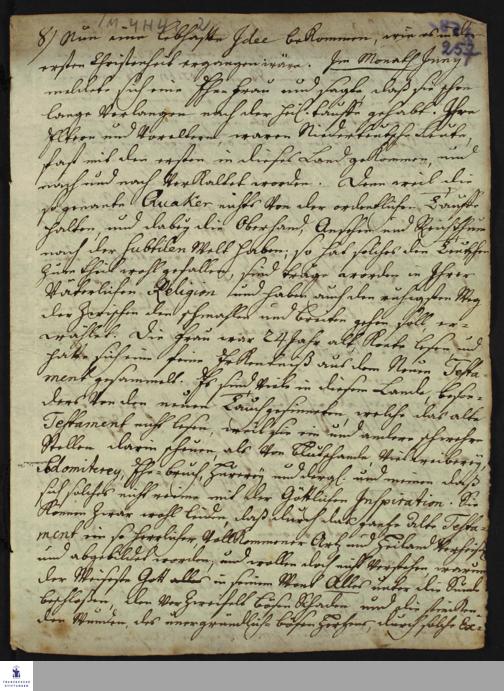 1M-4H4 2
257
8) Nun eine lebhaffte Idee bekommen, wie es in der
ersten Christenheit ergangen wäre. Im Monath Juny
meldete sich eine Ehefrau und sagte daß sie schon
lange Verlangen nach der heil. Tauffe gehabt. Ihre
Eltern und Voreltern waren Niederteutsche Leute,
fast mit den ersten in dießes Land gekommen, und
nach und nach verkaltet worden. Denn weil die
so genante Quaker nichts von der ordentlichen Tauffe
halten, und dabey die Oberhand, Ansehen und Reichthum
nach der subtilen Welt haben; so hat solches den Teutschen
zum theil wohl gefallen, sind träge worden in Ihrer
Väterlichen Religion und haben auch den ruhigsten Weg
der zwischen dem schmahlen und breiten gehen soll er-
wählet. Die Frau war 24 Jahr alt, konte lesen und
hatte sich eine feine Erkentniß aus dem Neuen Testa-
ment gesammelt. Es sind viele in diesem Lande, beson-
ders von den neuen Tauchgesinneten, welche das alte
Testament nicht lesen, weil sie ein und andere schwehre
Stellen darin scheuen, als von Blutschande Vielweiberey,
Sodomiterey, Ehebruch Hurerey und dergl. und meinen daß
sich solches nicht reime mit der Göttlichen Inspiration. Sie
können zwar wohl leiden, daß durch das gantze alte Testa-
ment ein so herrlicher vollkommener Artzt und Heiland verheißen
und abgebildet worden, und wollen doch nicht verstehen warum
der Weiseste Gott alles in seinem Wort Alles unter die Sünde
beschloßen, den verzweifelt bösen Schaden, und die stinkenden
Wunden, des unergründlich bösen Hertzens, durch solche Ex-
FRANCKESCHE STIFTUNGEN